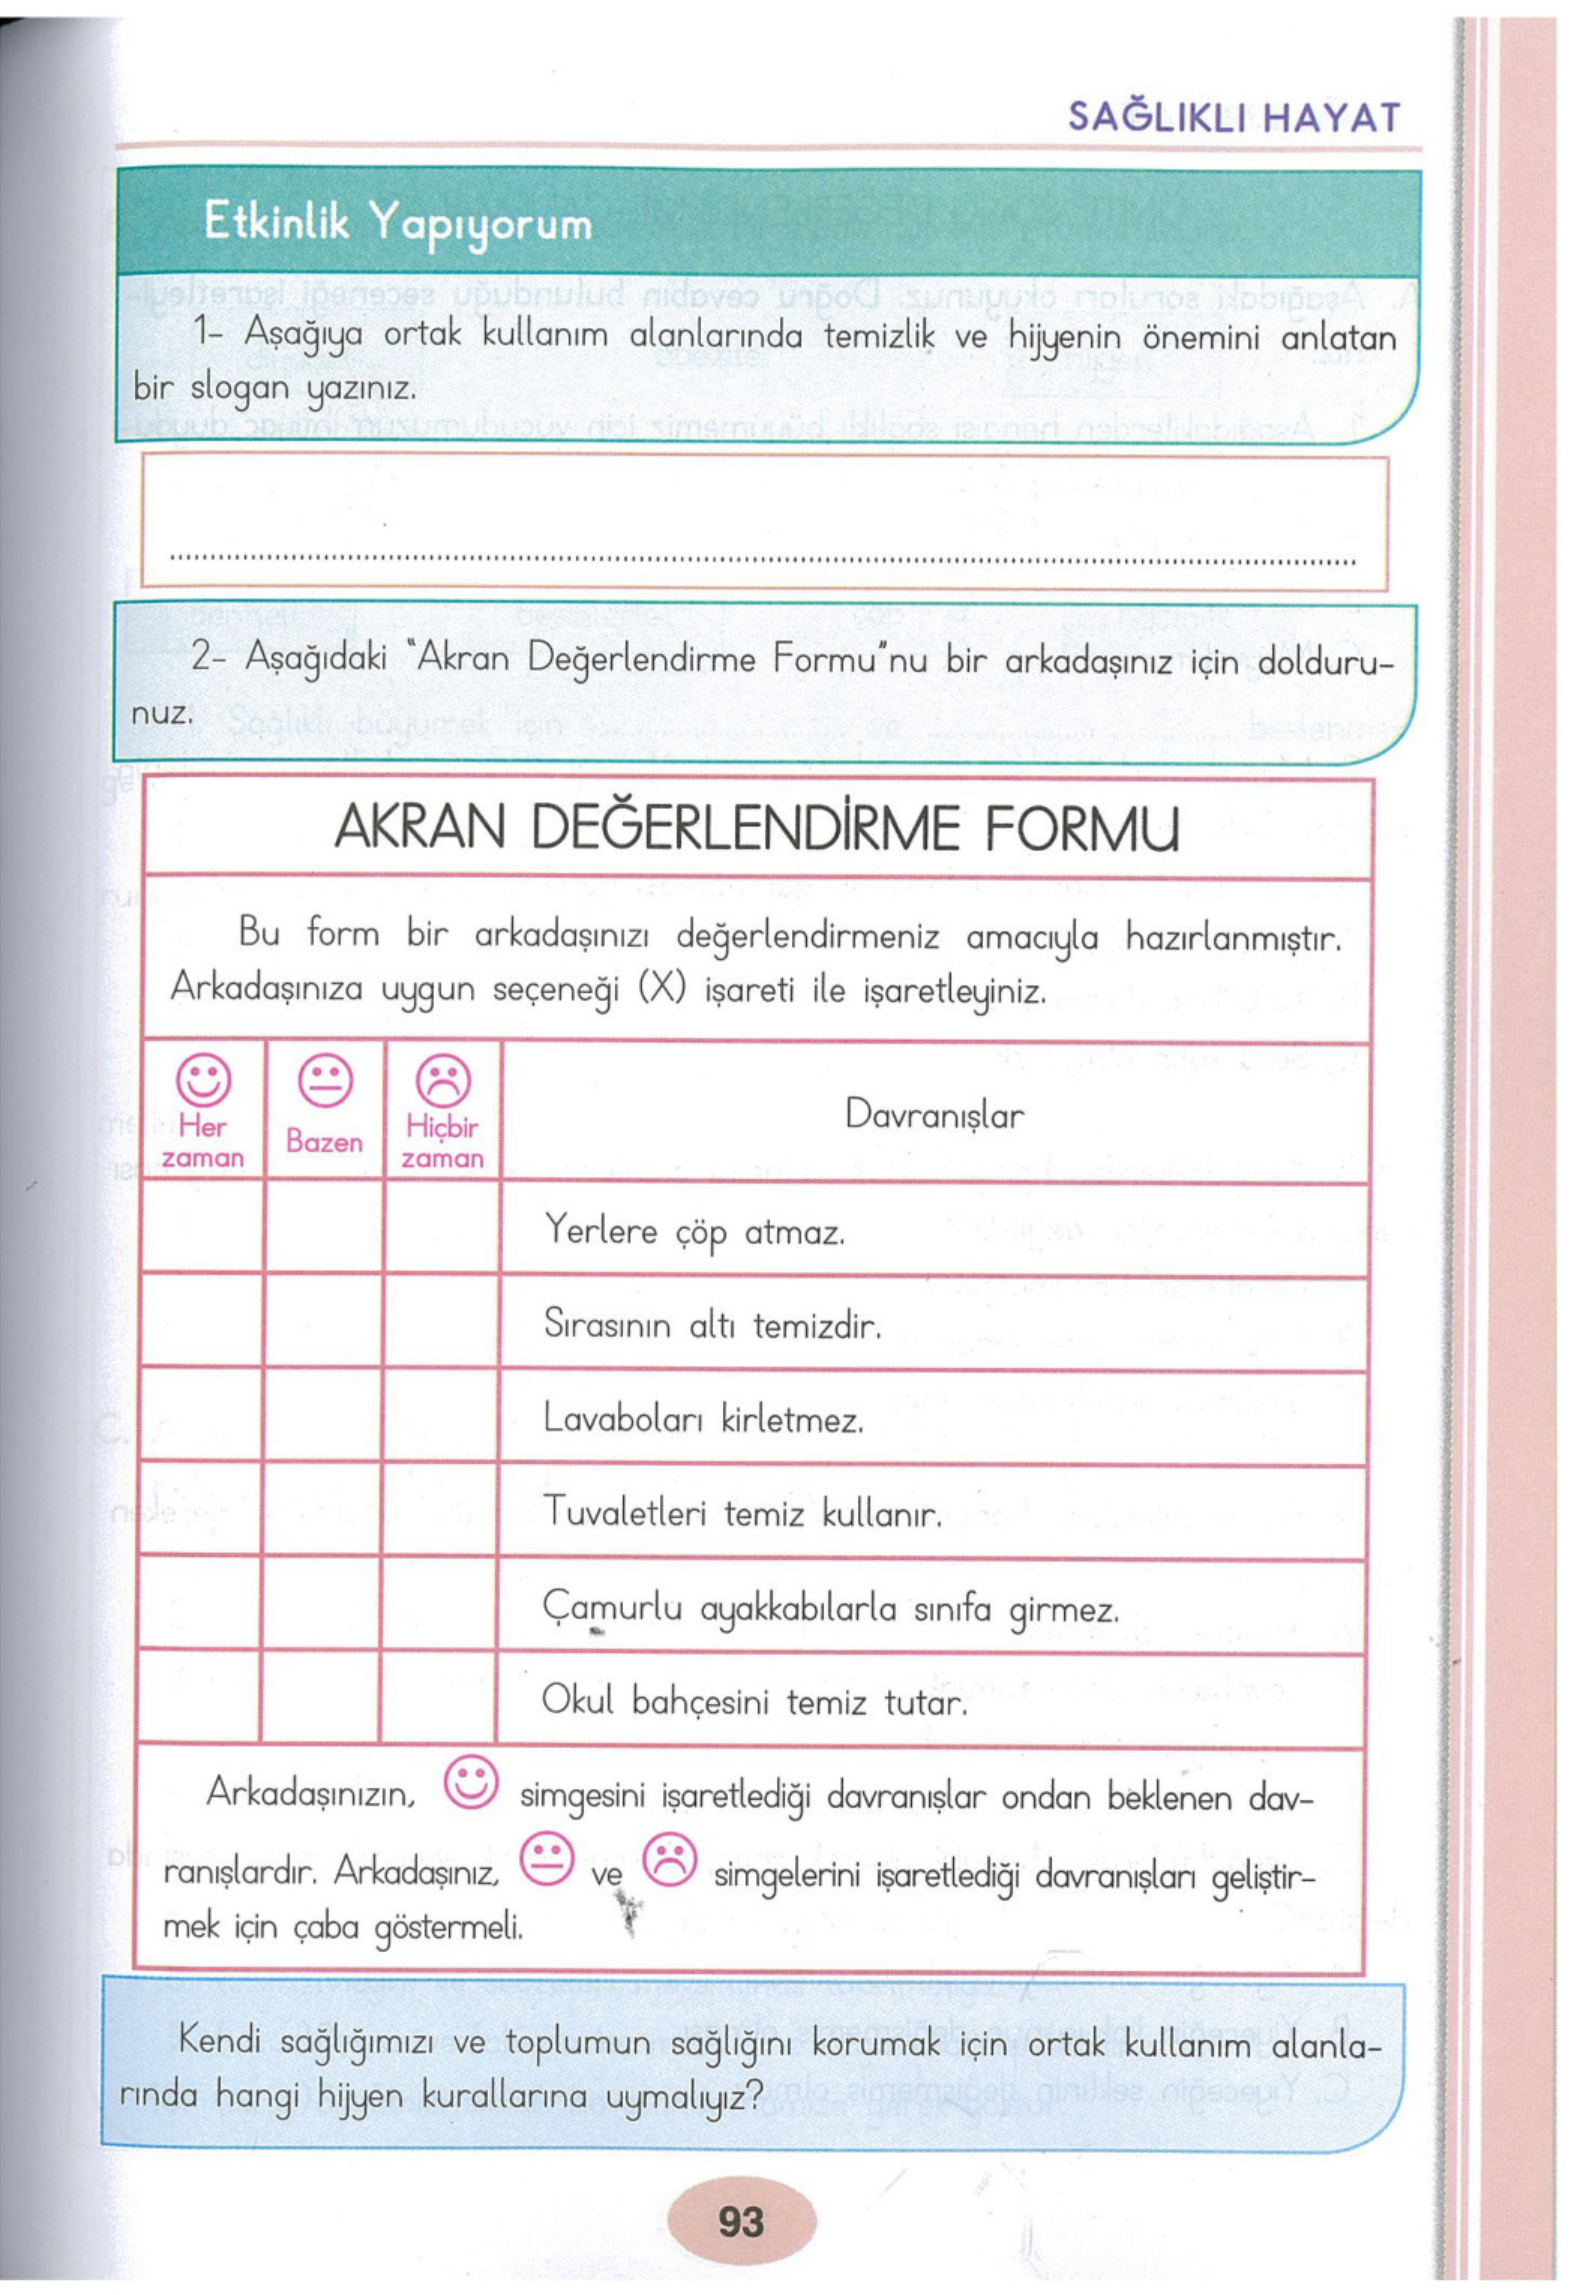 SAĞLIKLI HAYAT
Etkinlik Yapıyorum
1- Aşağıya ortak kullanım alanlarında temizlik ve hijyenin önemini anlatan
bir slogan yazınız.
2- Aşağıdaki "Akran Değerlendirme Formu"nu bir arkadaşınız için dolduru-
nuz.
AKRAN DEĞERLENDİRME FORMU
Bu form bir arkadaşınızı değerlendirmeniz amacıyla hazırlanmıştır.
Arkadaşınıza uygun seçeneği (X) işareti ile işaretleyiniz.
Her
zaman
Bazen
Hiçbir
zaman
Davranışlar
Yerlere çöp atmaz.
Sırasının altı temizdir.
Lavaboları kirletmez.
Tuvaletleri temiz kullanır.
Çamurlu ayakkabılarla sınıfa girmez.
Okul bahçesini temiz tutar.
Arkadaşınızın, simgesini işaretlediği davranışlar ondan beklenen dav-
ranışlardır. Arkadaşınız, ve simgelerini işaretlediği davranışları geliştir-
mek için çaba göstermeli.
Kendi sağlığımızı ve toplumun sağlığını korumak için ortak kullanım alanla-
rında hangi hijyen kurallarına uymalıyız?
93